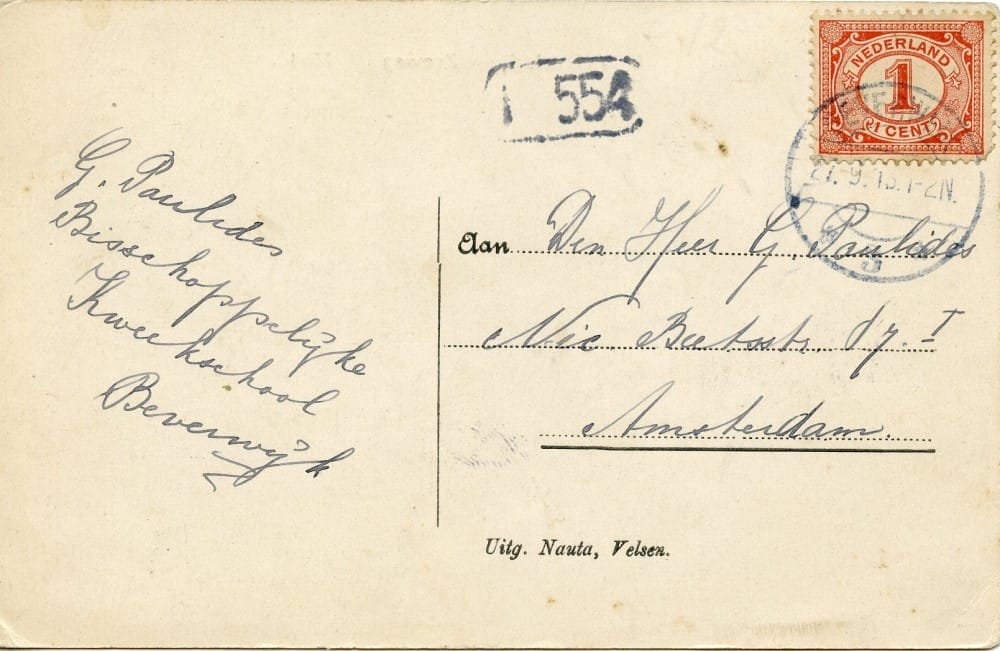 G. Paulides
Bisschoppelijke
Kweekschool
Beverwijk
554
NEDERLAND
1
1 CENT
27.-9.13.1-2N.
Aan Den Heer G. Paulides
Nic. Beetsstr. 87. I
Amsterdam.
Uitg. Nauta, Velsen.